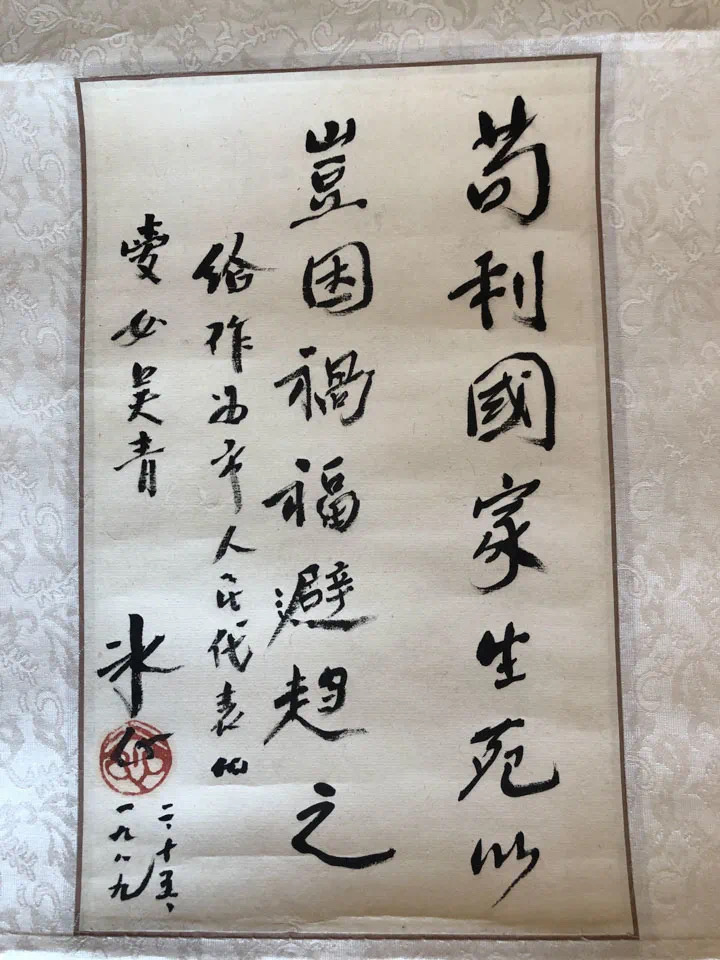 苟利國家生死以
豈因禍福避趋之
给作为市人民代表的
爱女吴青
冰心
二、十五、
一九八九